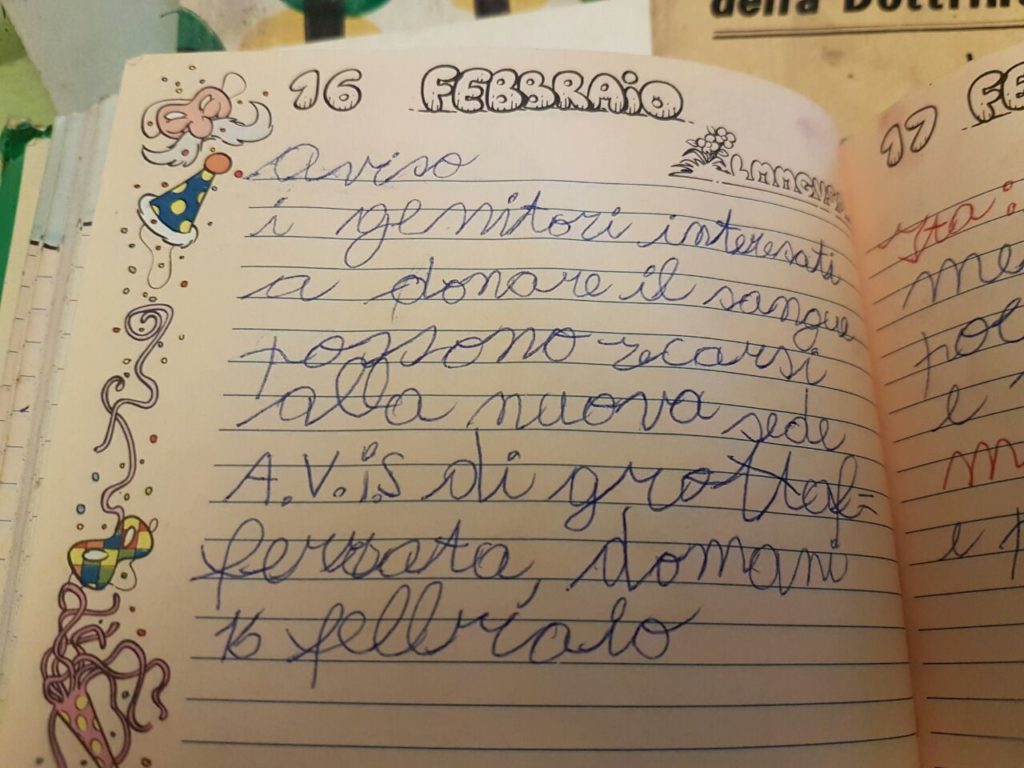 della Dottrin
16 FEBBRAIO
17 FE
Aviso
i genitori interesati
a donare il sangue
possono recarsi
alla nuova sede
A.V.i.S di grottaf=
ferrata, domani
16 febbraio